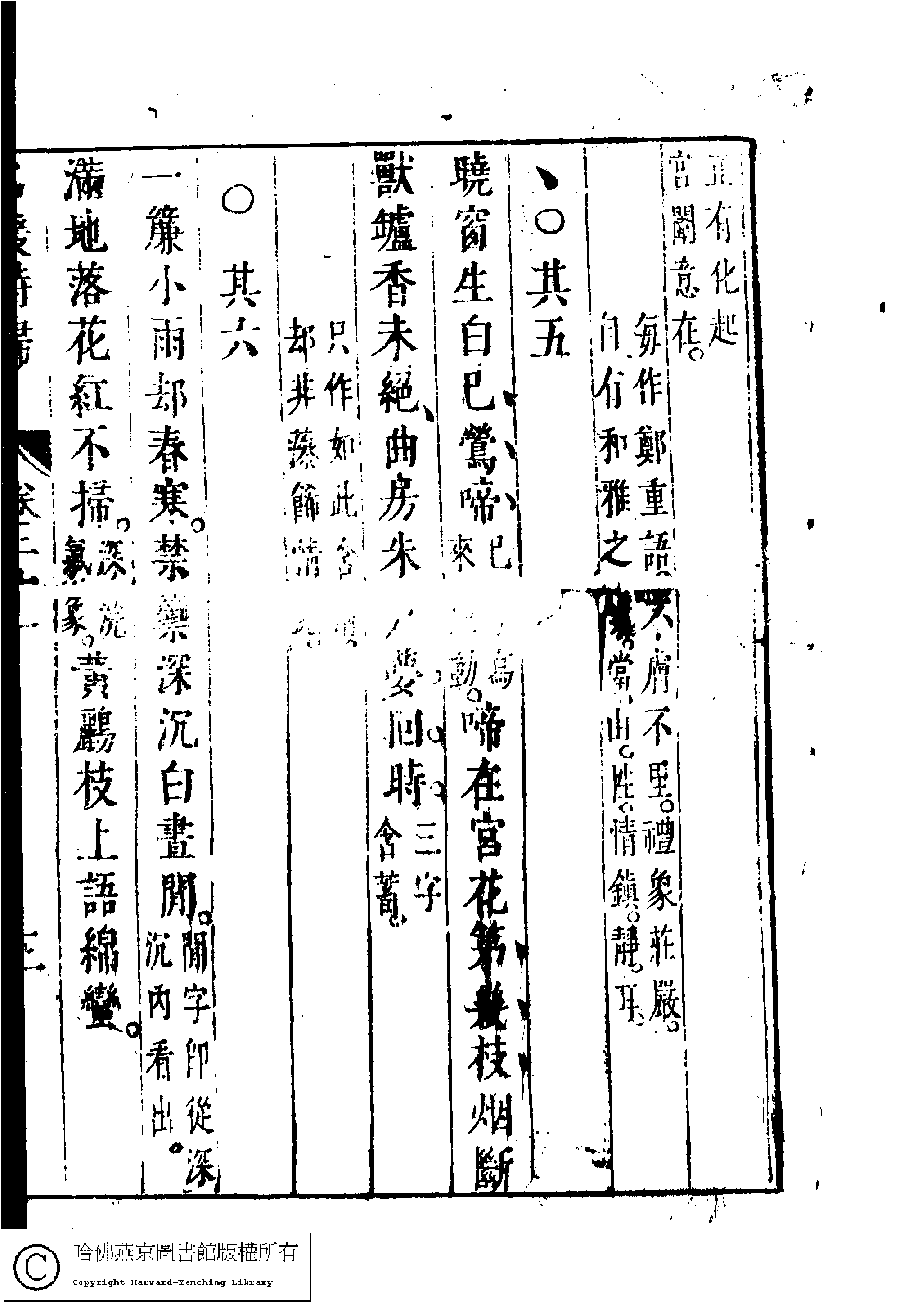 正有化起
宮閫意在。
每作鄭重語 膚不里。禮象莊嚴。
自有和雅之 當由。性。情鎮。靜。耳。
○其五
曉窗生白已鶯啼 已 啼在宮花第幾枝烟斷
來 動。
獸鑪香未絕曲房朱 夢回時 三字
含蓄
只作如此含
却非藻飾情
○其六
一簾小雨却春寒。禁籞深沉白晝閒。閒字即從深
沉內看出。
滿地落花紅不掃。深沈
氣象。黃鸝枝上語綿蠻。
哈佛燕京圖書館版權所有
Copyright Harvard-Yenching Library